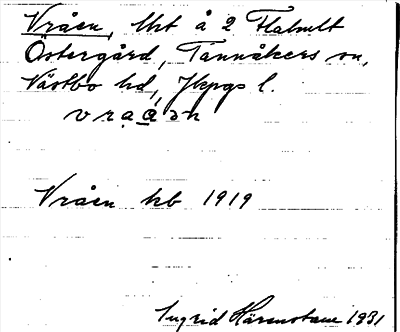 Vråen, lht å 2 Flahult
Östergård, Tannåkers sn,
Västbo hd, Jkpgs l.
vraạ́ən
Vråen hb 1919
Ingrid 1931